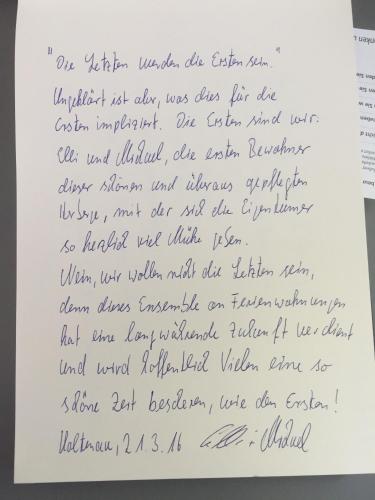 "Die Letzten werden die Ersten sein."
Ungeklärt ist aber, was dies für die
Ersten impliziert. Die Ersten sind wir:
Elli und Michael, die ersten Bewohner
dieser schönen und überaus gepflegten
Herberge, mit der sich die Eigentümer
so herzlich viel Mühe geben.
Nein, wir wollen nicht die Letzten sein,
denn dieses Ensemble an Ferienwohnungen
hat eine langwährende Zukunft verdient
und wird hoffentlich Vielen eine so
schöne Zeit bescheren, wie den Ersten!
Holtenau, 21.3.16 Elli + Michael